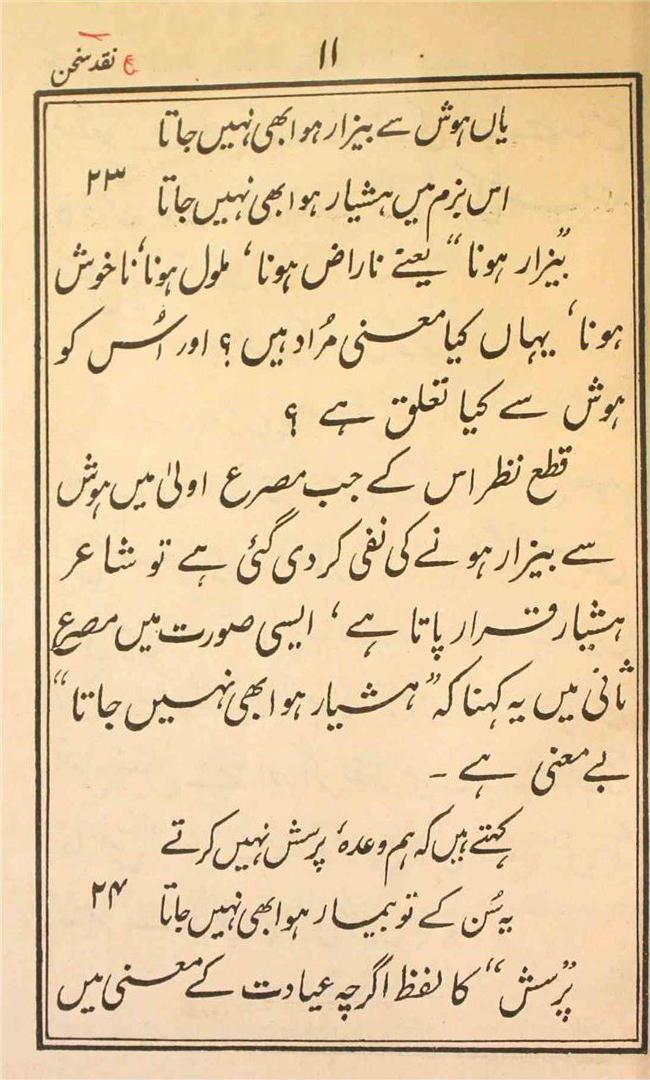 نقد سخن
۱۱
یاں ہوش سے بیزار ہوا بھی نہیں جاتا
اس بزم میں ہشیار ہوا بھی نہیں جاتا ۲۳
”بیزار ہونا“ یعنے ناراض ہونا، ملول ہونا، ناخوش
ہونا، یہاں کیا معنی مُراد ہیں؟ اور اُس کو
ہوش سے کیا تعلق ہے ؟
قطع نظر اس کے جب مصرع اولیٰ میں ہوش
سے بیزار ہونے کی نفی کر دی گئی ہے تو شاعر
ہشیار قرار پاتا ہے، ایسی صورت میں مصرع
ثانی میں یہ کہنا کہ ”ہشیار ہوا بھی نہیں جاتا“
بے معنی ہے ۔
کہتے ہیں کہ ہم وعدۂ پرسش نہیں کرتے
یہ سُن کے تو بیمار ہوا بھی نہیں جاتا ۲۴
”پُرسش“ کا لفظ اگرچہ عیادت کے معنی میں